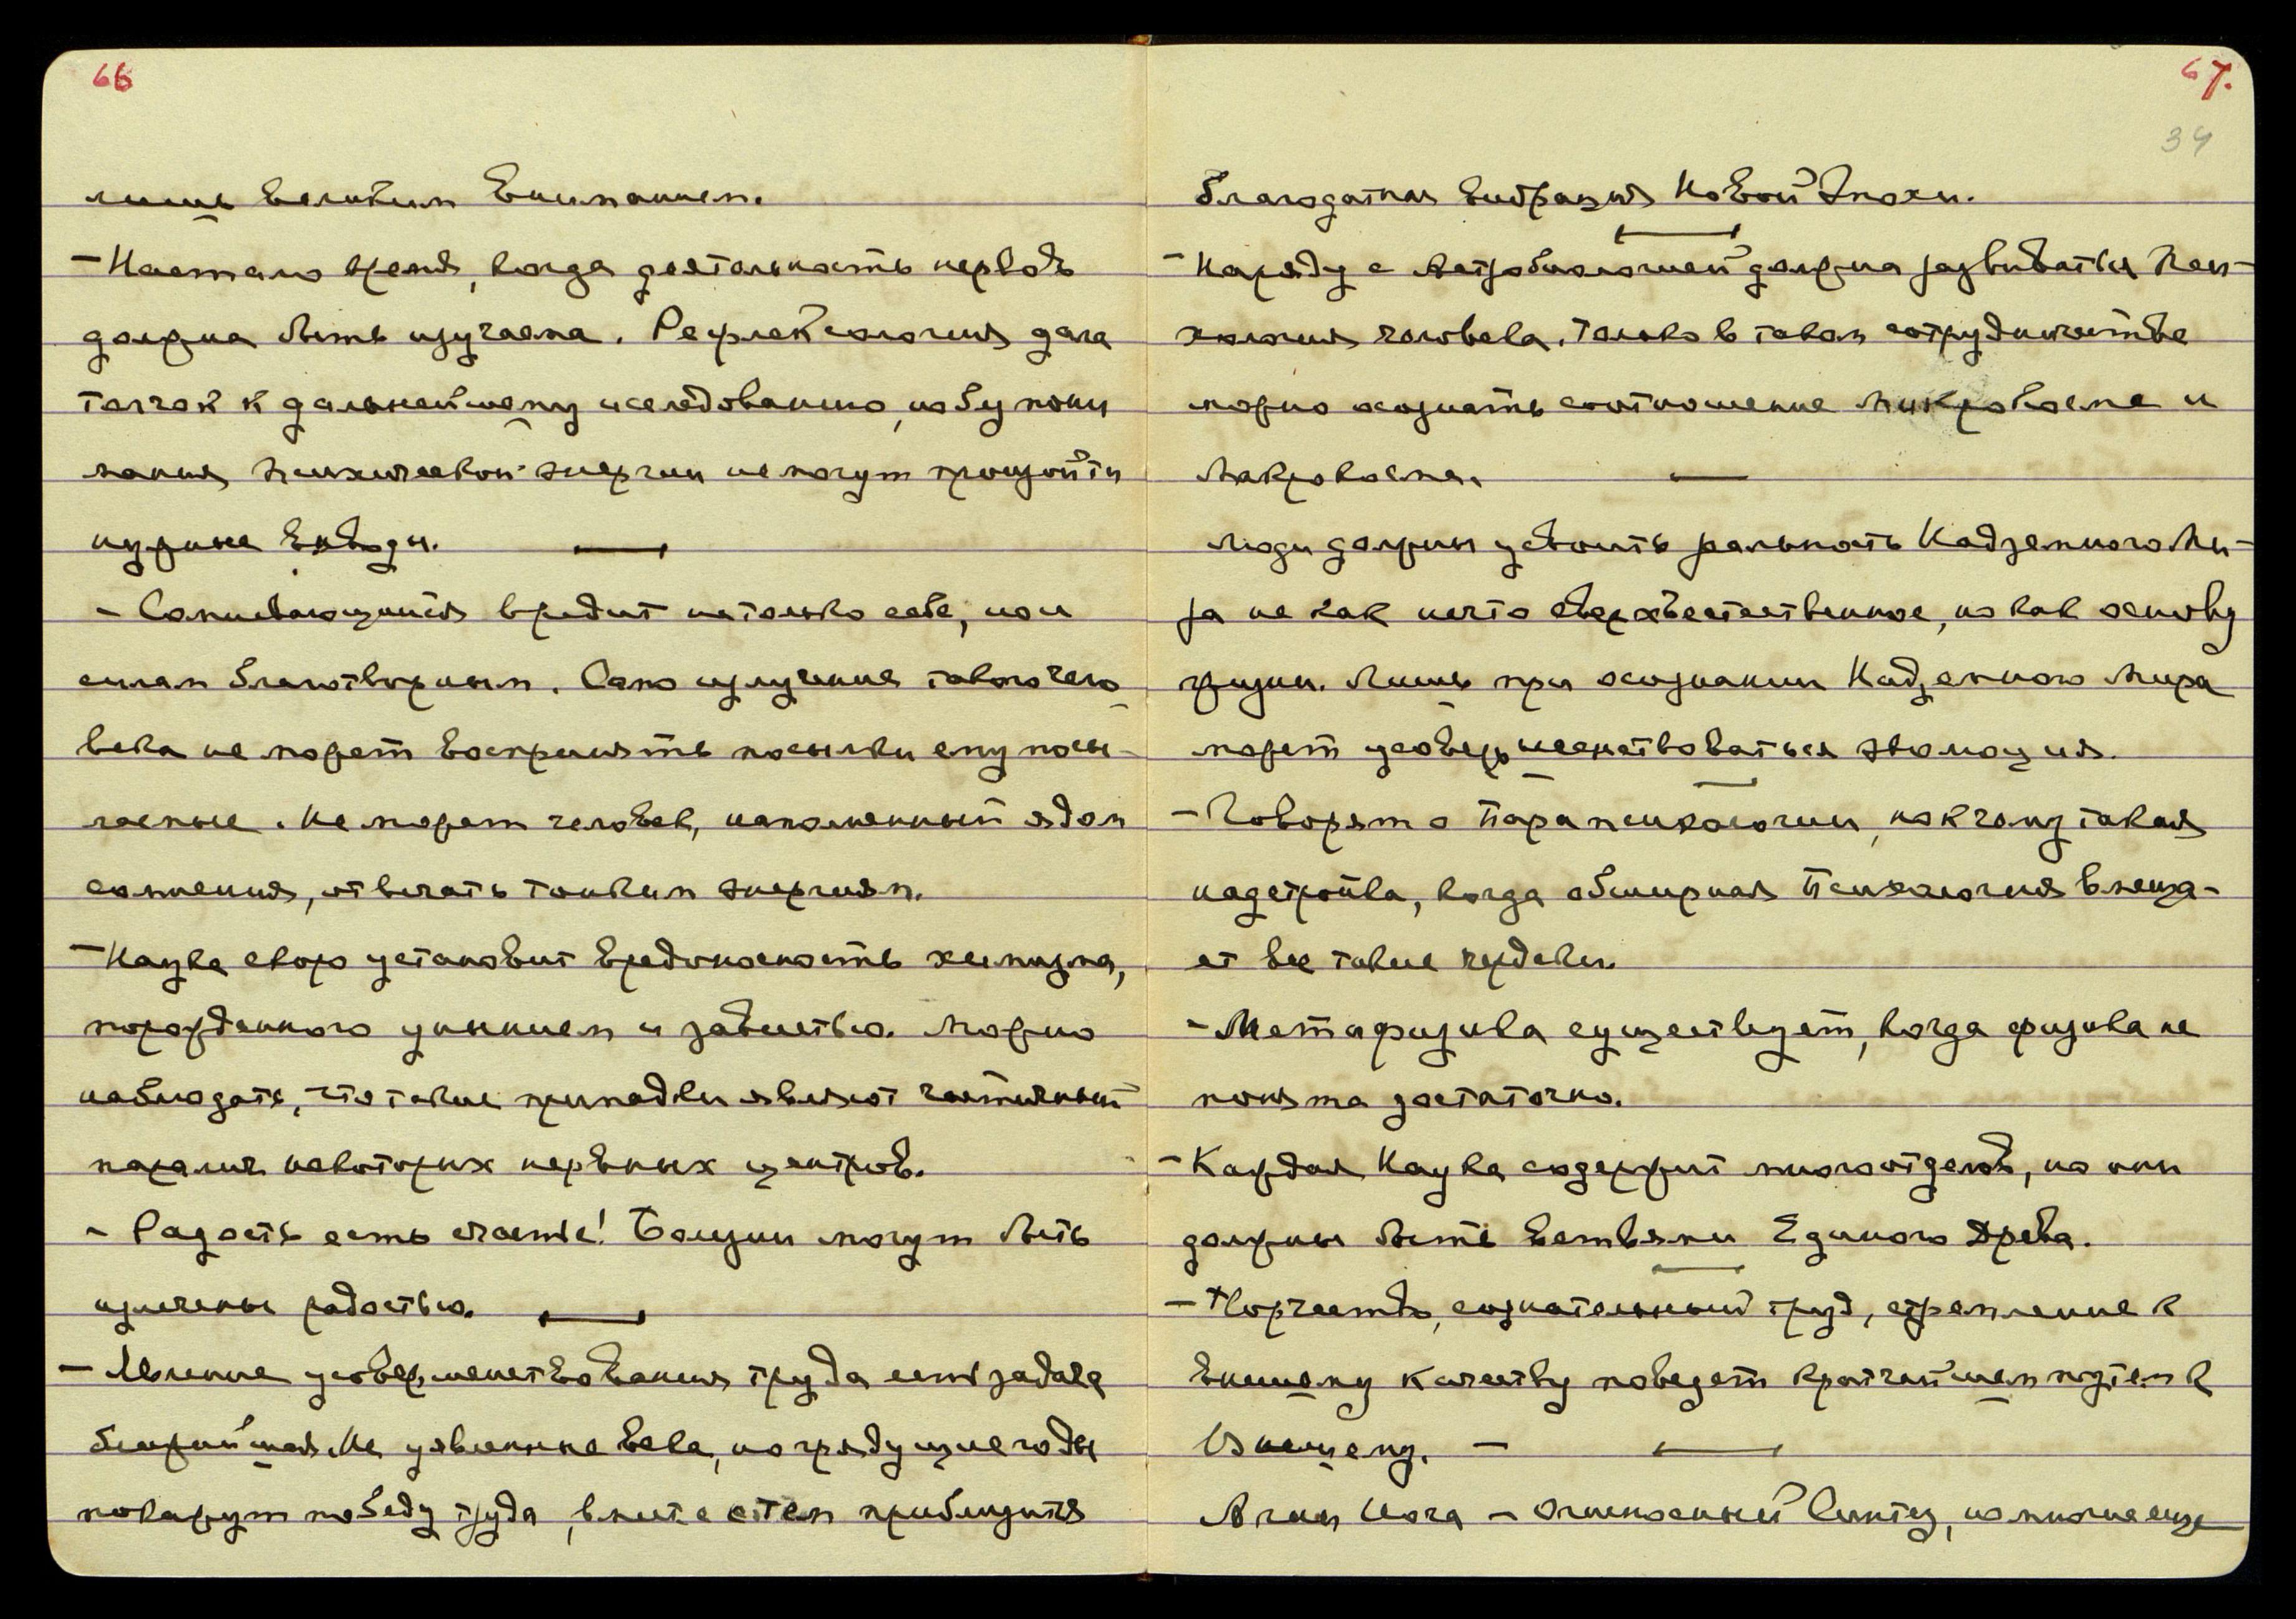 66
лишь великим вниманием.
– Настало время, когда деятельность нервов
должна быть изучаема. Рефлексология дала
толчок к дальнейшему исследованию, но без пони
мания психической энергии не могут произойти
нужные выводы.
– Сомневающийся вредит не только себе, но и
силам благотворным. Само излучение такого чело
века не может воспринять посылки ему посы-
лаемые. Не может человек, наполненный ядом
сомнения, отвечать тонким энергиям.
– Наука скоро установит вредоносность химизма,
порожденного унынием и завистью. Можно
наблюдать, что такие припадки являют частичный
паралич некоторых нервных центров.
– Радость есть счастье! Болезни могут быть
излечены радостью.
– Явление усовершенствования труда есть задача
ближайшая. Не удвоение века, но грядущие годы
покажут победу труда, вместе с тем приблизится
67.
34
Благодатная вибрация Новой Эпохи.
– Наряду с Астробиологией должна развиваться Пси-
хология человека. Только в таком сотрудничестве
можно осознать соотношение Микрокосма и
Макрокосма.
Люди должны усвоить реальность Надземного Ми-
ра не как нечто сверхъестественное, но как основу
жизни. Лишь при осознании Надземного Мира
может усовершенствоваться эволюция.
– Говорят о Парапсихологии, но к чему такая
надстройка, когда обширная Психология вмеща-
ет все такие чердаки.
– Метафизика существует, когда физика не
понята достаточно.
– Каждая Наука содержит много отделов, но они
должны быть ветвями Единого Древа.
– Творчество, сознательный труд, стремление к
высшему качеству поведет кратчайшим путем к
Высшему. –
Агни Йога – Огненосный Синтез, но многие еще